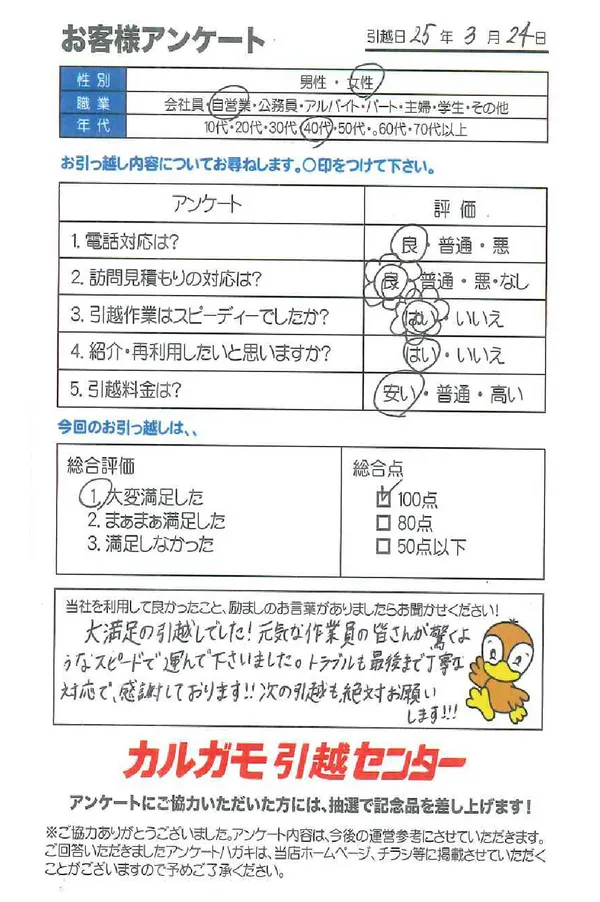 お客様アンケート
引越日 25年 3月 24日
性別 男性・女性
職業 会社員・自営業・公務員・アルバイト・パート・主婦・学生・その他
年代 10代・20代・30代・40代・50代・。60代・70代以上
お引っ越し内容についてお尋ねします。〇印をつけて下さい。
アンケート 評価
1. 電話対応は? 良・普通・悪
2. 訪問見積もりの対応は? 良・普通・悪・なし
3. 引越作業はスピーディーでしたか? はい・いいえ
4. 紹介・再利用したいと思いますか? はい・いいえ
5. 引越料金は? 安い・普通・高い
今回のお引っ越しは、、
総合評価
1. 大変満足した
2. まぁまぁ満足した
3. 満足しなかった
総合点
100点
80点
50点以下
当社を利用して良かったこと、励ましのお言葉がありましたらお聞かせください!
大満足の引越しでした!元気な作業員の皆さんが驚くよ
うなスピードで運んで下さいました。トラブルも最後まで丁寧な
対応で、感謝しております!!次の引越も絶対お願い
します!!!
カルガモ引越センター
アンケートにご協力いただいた方には、抽選で記念品を差し上げます!
※ご協力ありがとうございました。アンケート内容は、今後の運営参考にさせていただきます。
ご回答いただきましたアンケートハガキは、当店ホームページ、チラシ等に掲載させていただく
ことがございますので予めご了承ください。